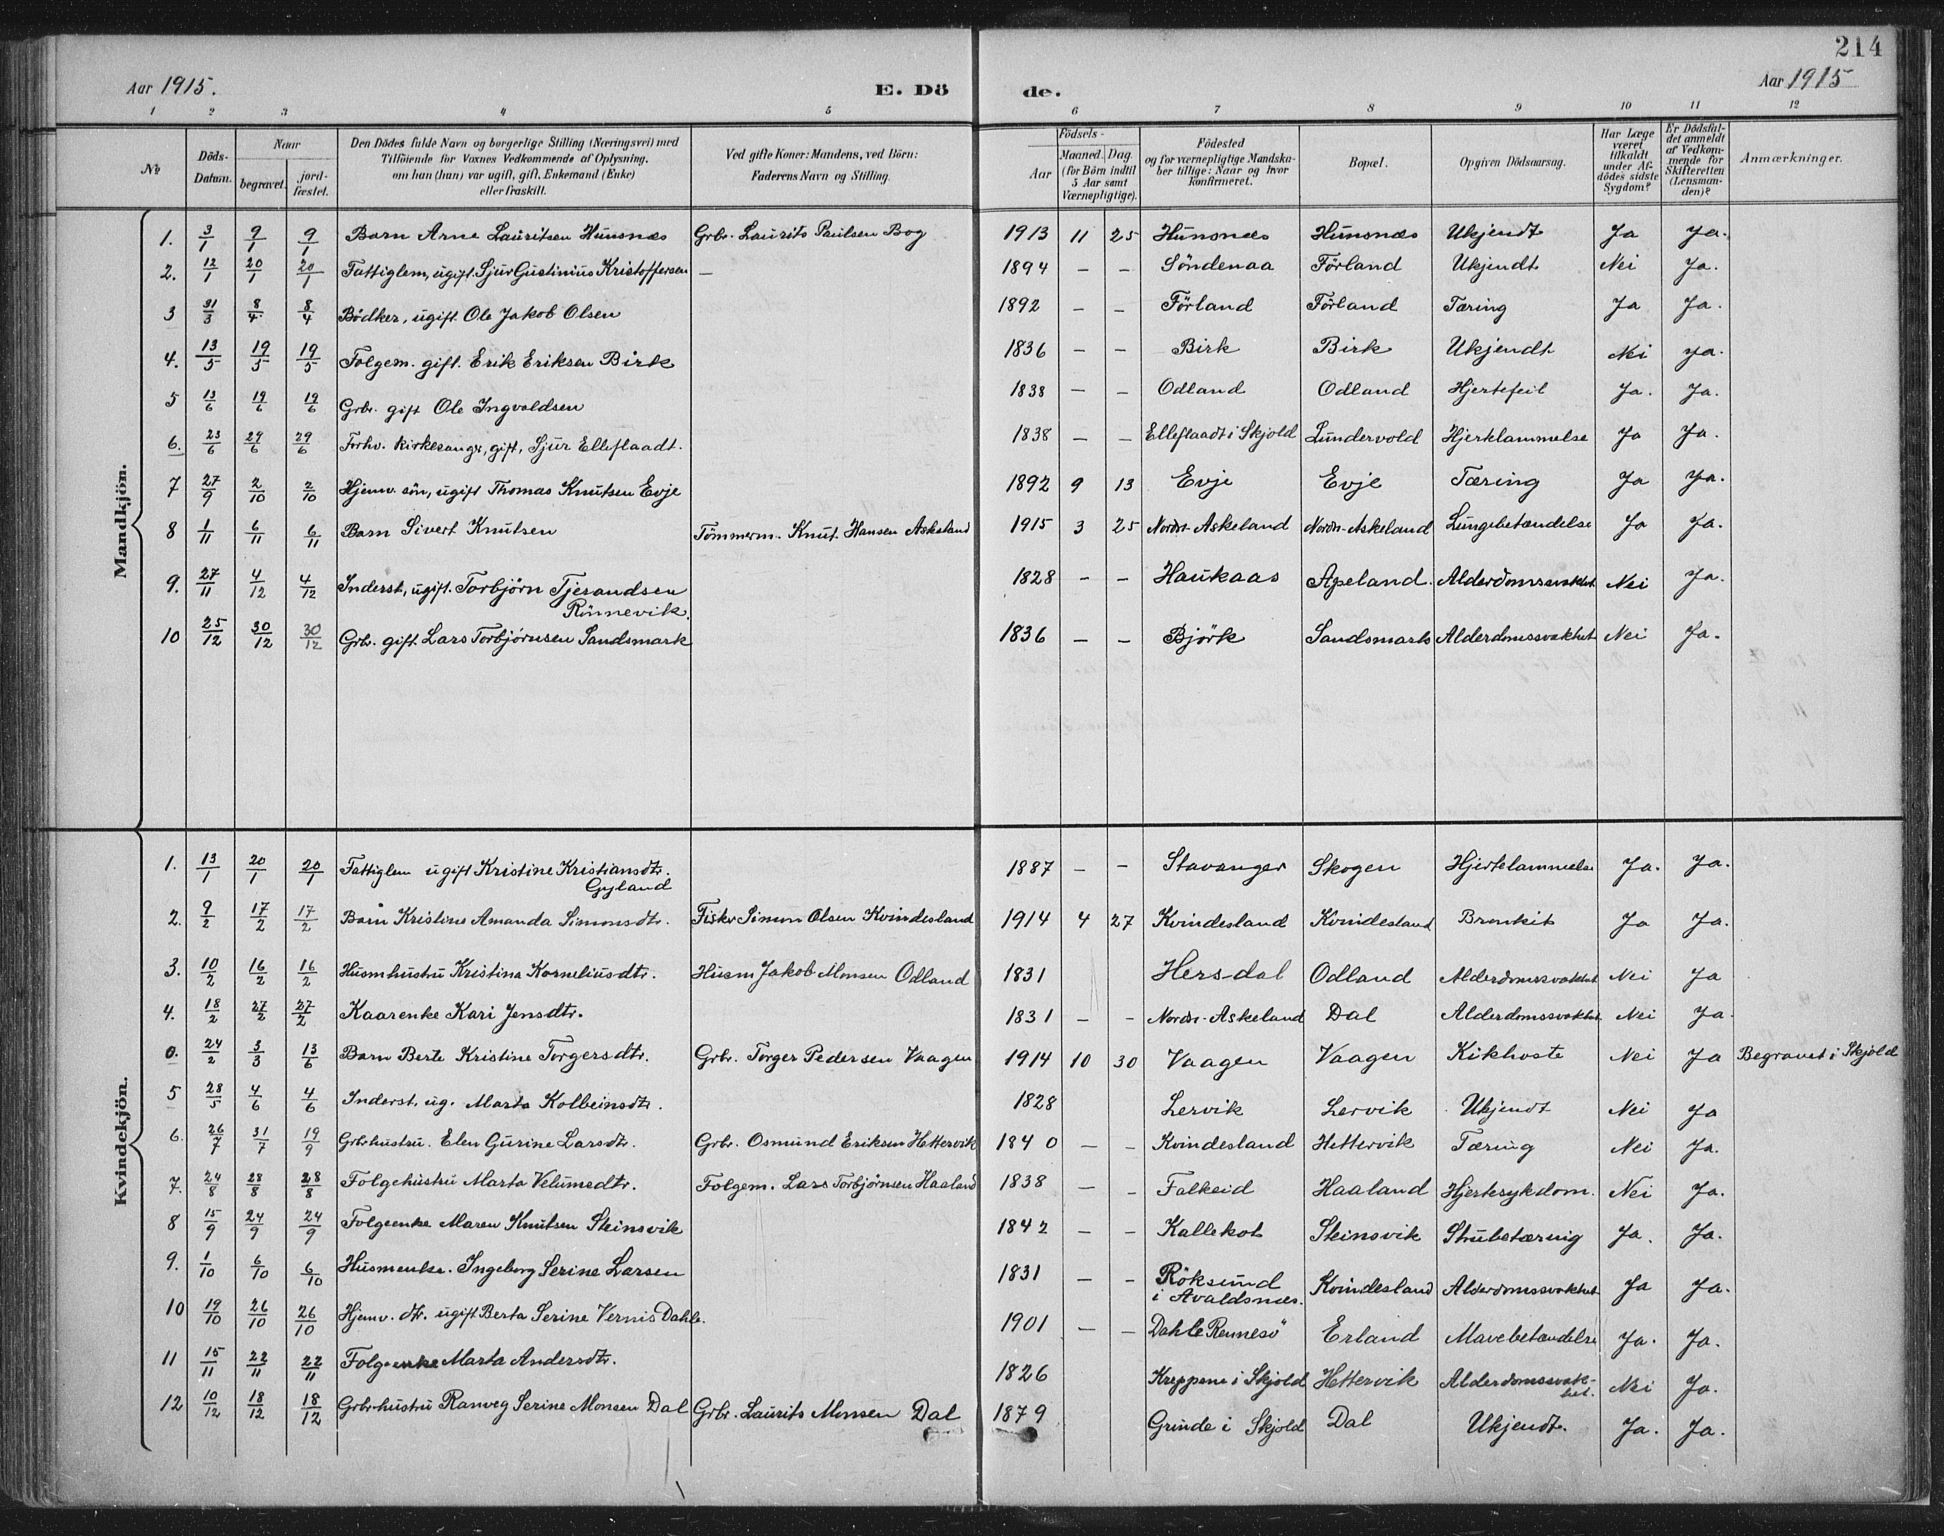 214
Aar 1915. E. Dö de. Aar 1915
1 2 3 4 5 6 7 8 9 10 11 12
No Döds-Datum. Naar begravet. jord-fæstet. Den Dödes fulde Navn og borgerlige Stilling (Næringsvei) med Tilföiende for Voxnes Vedkommende af Oplysning, om han (hun) var ugift, gift, Enkemand (Enke) eller fraskilt. Ved gifte Koner: Mandens, ved Börn: Faderens Navn og Stilling. Födsels- Aar Maaned. Dag. (for Börn indtil 5 Aar samt Værnepligtige). Födested og for værnepligtige Mandskaber tillige: Naar og hvor konfirmeret. Bopæl. Opgiven Dödsaarsag. Har Læge været tilkaldt under Afdödes sidste Sygdom? Er Dödsfaldet anmeldt af Vedkommende for Skifteretten (Lensmanden)? Anmærkninger.
Mandkjön.
1. 3/1 9/1 9/1 Barn Arne Lauritsen Hunsnæs Grbr. Laurits Paulsen Bog 1913 11 25 Hunsnæs Hunsnæs Ukjendt Ja Ja.
2. 12/1 20/1 20/1 Fattiglem, ugift Sjur Gustinius Kristoffersen — 1894 — — Söndenaa Förland Ukjendt Nei Ja.
3 31/3 8/4 8/4 Bödker, ugift Ole Jakob Olsen 1892 — — Förland Förland Tæring Ja Ja.
4. 13/5 19/5 19/5 Folgem. gift. Erik Eriksen Birk 1836 — — Birk Birk Ukjendt Nei Ja.
5 13/6 19/6 19/6 Grbr. gift Ole Ingvaldsen 1838 — — Odland Odland Hjertefeil Ja. Ja.
6. 23/6 29/6 29/6 Forhv. kirkesangr, gift, Sjur Elleflaadt. 1838 — — Elleflaadt i Skjold Lundervold Hjertelammelse Ja Ja.
7 27/9 2/10 2/10 Hjemv. sön, ugift Thomas Knutsen Evje 1892 9 13 Evje Evje Tæring Ja Ja.
8 1/11 6/11 6/11 Barn Sivert Knutsen Tömmerm. Knut Hansen Askeland 1915 3 25 Nordr. Askeland Nordr. Askeland Lungebetændelse Ja Ja.
9. 27/11 4/12 4/12 Inderst, ugift. Torbjörn Tjerandsen Rönnevik. 1828 — — Haukaas Apeland. Alderdomssvakhet Nei Ja.
10 25/12 30/12 30/12 Grbr. gift. Lars Torbjörnsen Sandsmark 1836 — — Björk Sandsmark Alderdomssvakhet Nei Ja.
Kvindekjön.
1. 13/1 20/1 20/1 Fattiglem ugift Kristine Kristiansdtr. Gyland 1887 — — Stavanger Skogen Hjertelammelse Ja. Ja.
2. 9/2 17/2 17/2 Barn Kristine Amanda Simonsdtr. Fisker Simon Olsen Kvindesland 1914 4 27 Kvindesland Kvindesland Bronkit Ja Ja.
3. 10/2 16/2 16/2 Husmhustru Kristina Korneliusdtr. Husm Jakob Monsen Odland 1831 Hersdal Odland Alderdomssvakhet Nei Ja
4. 18/2 27/2 27/2 Kaarenke Kari Jensdtr. 1831 — — Nordr. Askeland Dal Alderdomssvakhet Nei Ja.
0. 24/2 3/3 13/6 Barn Berte Kristine Torgersdtr. Grbr. Torger Pedersen Vaagen 1914 10 30 Vaagen Vaagen Kikhoste Nei Ja Begravet i Skjold
5 28/5 4/6 4/6 Inderst, ug. Marta Kolbeinsdtr. 1828 Lervik Lervik Ukjendt Nei Ja
6. 26/7 31/7 19/9 Grbrhustru. Elen Gurine Larsdtr. Grbr. Osmund Eriksen Hettervik 1840 — — Kvindesland Hettervik Tæring Nei Ja.
7. 24/8 28/8 28/8 Folgehustru Marta Velumsdtr. Folgem. Lars Torbjørnsen Haaland 1838 — — Falkeid Haaland Hjertesykdom. Nei Ja.
8 15/9 24/9 24/9 Folgeenke Maren Knutsen Steinsvik 1842 — — Kallekot Steinsvik Strubetæring Ja. Ja.
9. 1/10 6/10 6/10 Husmenke. Ingeborg Serine Larsen 1831 — — Röksund i Avaldsnes. Kvindesland Alderdomssvakhet Ja Ja.
10 19/10 26/10 26/10 Hjemv. dtr. ugift Berta Serine Vernis Dahle. 1901 — — Dahle Rennesö Erland Mavebetændelse Ja. Ja.
11 15/11 22/11 22/11 Folgeenke Marta Andersdtr. 1826 Kreppene i Skjold Hettervik Alderdomssvakhet. Nei Ja.
12 10/12 18/12 18/12 Grbrhustru Ranveg Serine Monsen Dal Grbr. Laurits Monsen Dal 1879 Grinde i Skjold Dal Ukjendt. Ja. Ja.